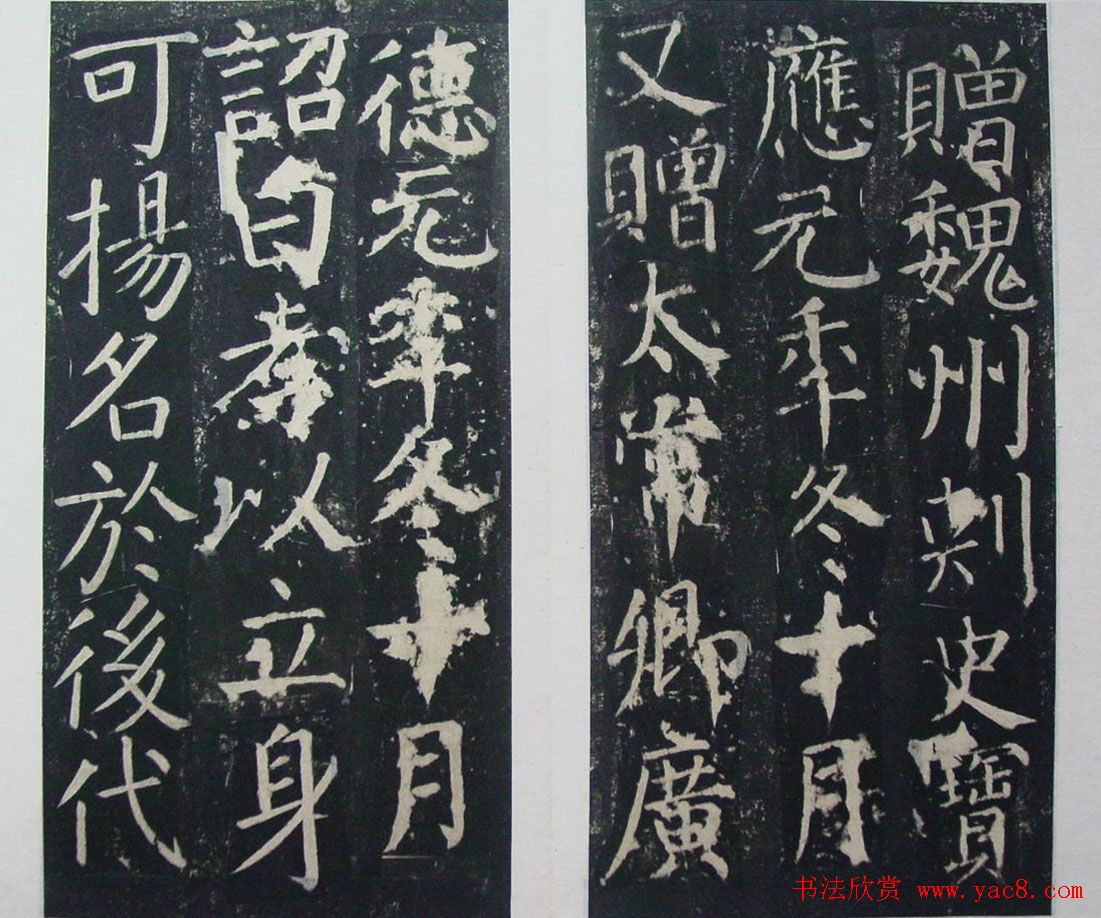 贈魏州刾史寶
應元年冬十月
又贈太常卿廣
德元年冬十月
詔曰孝以立身
可揚名於後代
书法欣赏 www.yac8.com